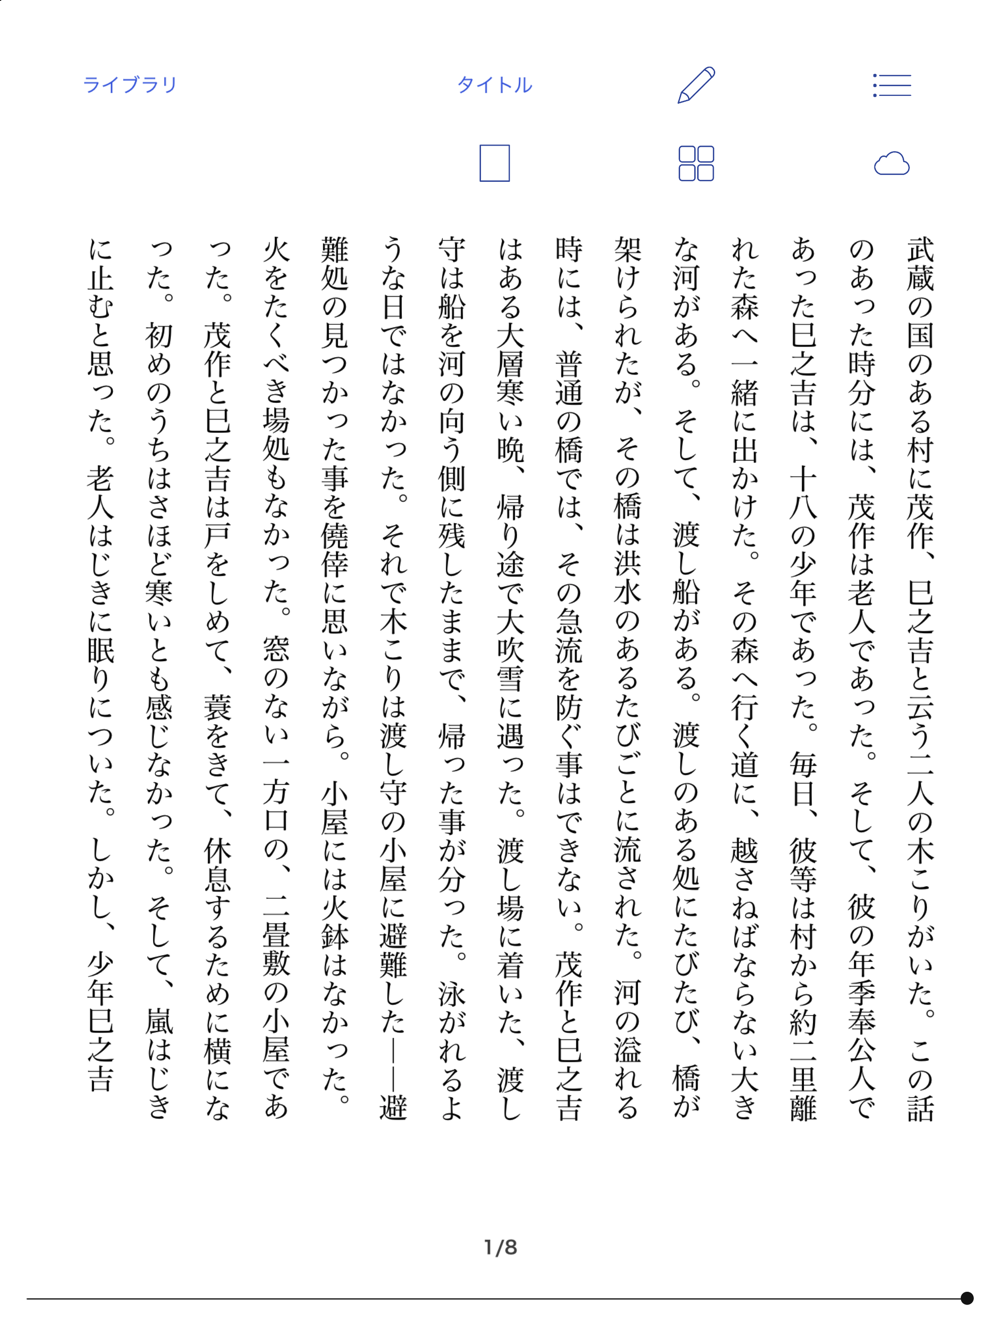 ライブラリ
タイトル
武蔵の国のある村に茂作、巳之吉と云う二人の木こりがいた。この話
のあった時分には、茂作は老人であった。そして、彼の年季奉公人で
あった巳之吉は、十八の少年であった。毎日、彼等は村から約二里離
れた森へ一緒に出かけた。その森へ行く道に、越さねばならない大き
な河がある。そして、渡し船がある。渡しのある処にたびたび、橋が
架けられたが、その橋は洪水のあるたびごとに流された。河の溢れる
時には、普通の橋では、その急流を防ぐ事はできない。茂作と巳之吉
はある大層寒い晩、帰り途で大吹雪に遇った。渡し場に着いた、渡し
守は船を河の向う側に残したままで、帰った事が分った。泳がれるよ
うな日ではなかった。それで木こりは渡し守の小屋に避難した――避
難処の見つかった事を僥倖に思いながら。小屋には火鉢はなかった。
火をたくべき場処もなかった。窓のない一方口の、二畳敷の小屋であ
った。茂作と巳之吉は戸をしめて、蓑をきて、休息するために横にな
った。初めのうちはさほど寒いとも感じなかった。そして、嵐はじき
に止むと思った。老人はじきに眠りについた。しかし、少年巳之吉
1/8